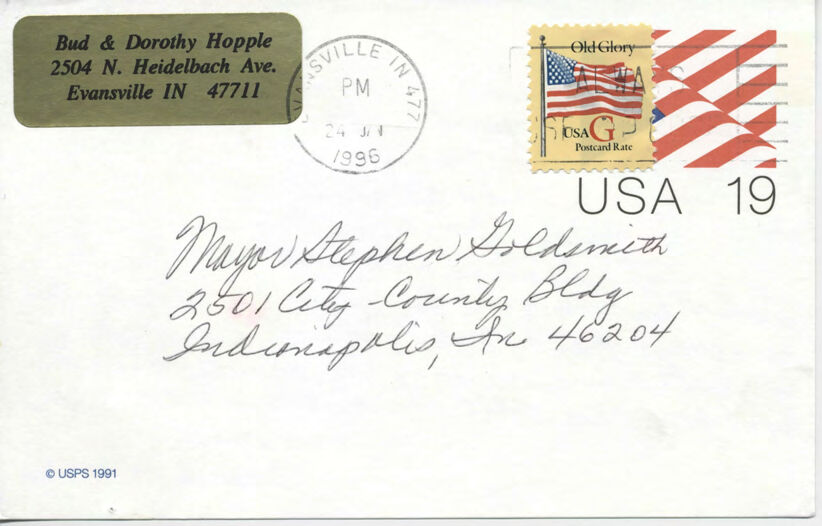 Bud & Dorothy Hopple
2504 N. Heidelbach Ave.
Evansville IN 47711
EVANSVILLE IN 477
PM
24 JAN
1996
Old Glory
USA G
Postcard Rate
USA 19
Mayor Stephen Goldsmith
2501 City-County Bldg
Indianapolis, In 46204
© USPS 1991